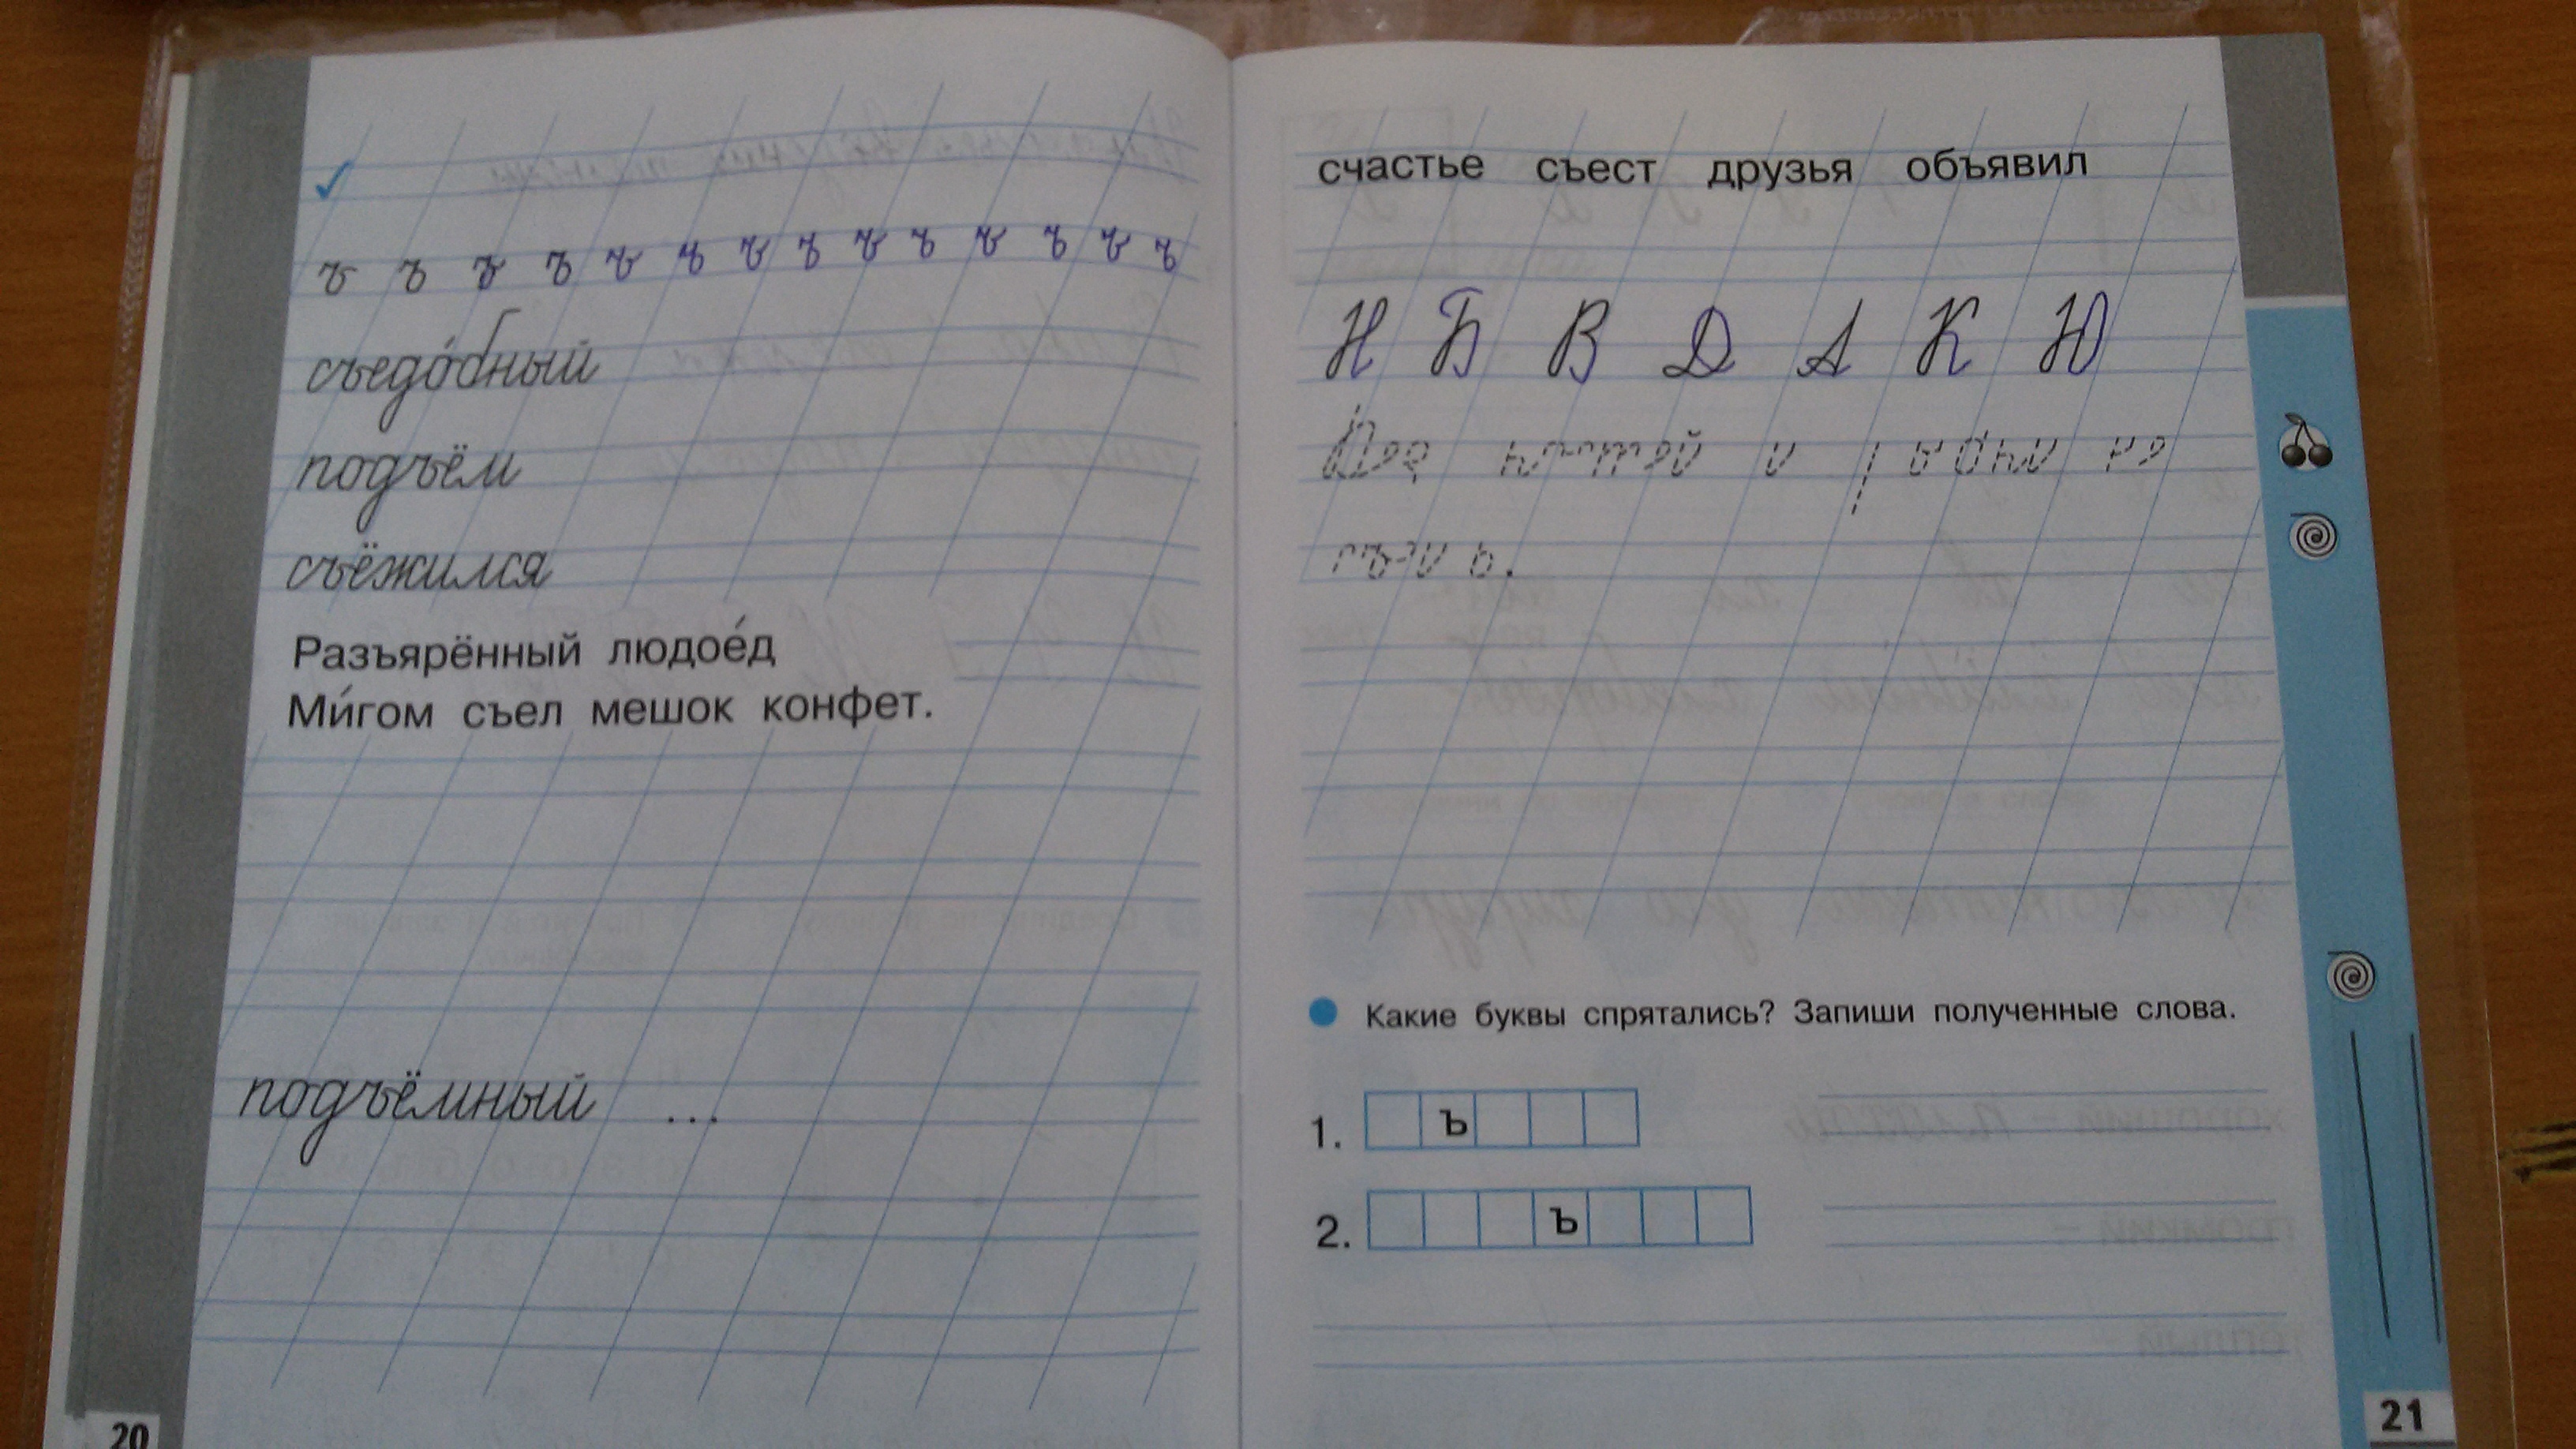 ъ ъ ъ ъ ъ ъ ъ ъ ъ ъ ъ ъ ъ ъ
съедо́бный
подъём
съёжился
Разъярённый людое́д
Ми́гом съел мешок конфет.
подъёмный ...
20
счастье съест друзья объявил
Н Б В Д А К Ю
и
.
Какие буквы спрятались? Запиши полученные слова.
1. ъ
2. ъ
21